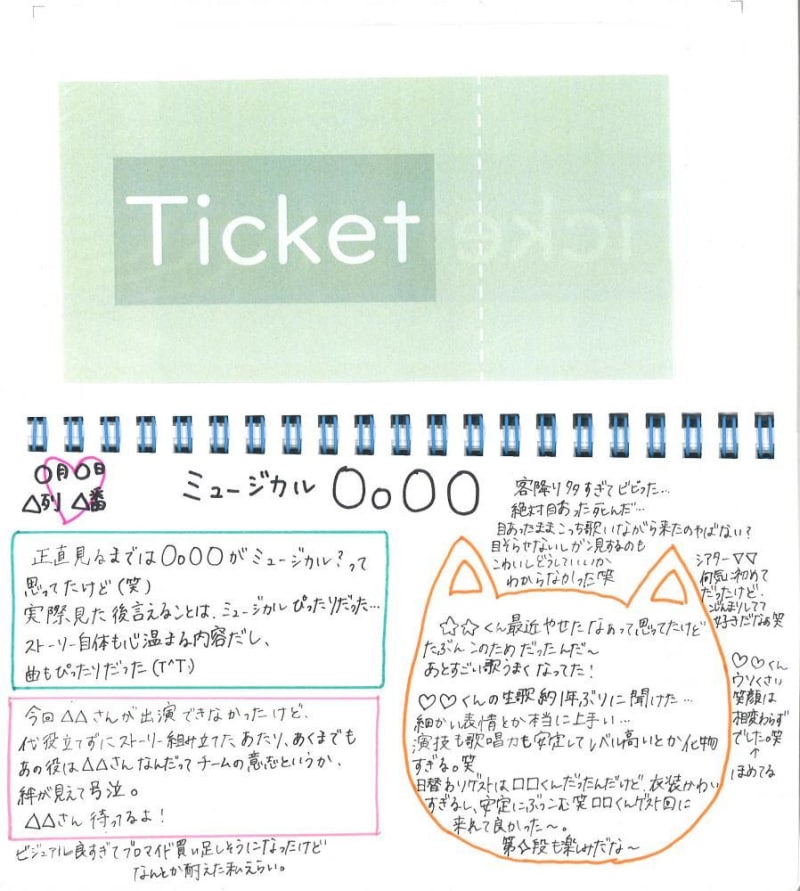 Ticket
〇月〇日
△列 △番
ミュージカル 〇。〇〇
客降り多すぎてビビった…
絶対目あった死んだ…
目あったままこっち歌いながら来たのやばない?
目そらせないしガン見するのも
こわいしどうしていいか
わからなかった笑
正直見るまでは〇。〇〇がミュージカル?って
思ってたけど(笑)
実際見た後言えることは、ミュージカルぴったりだった…
ストーリー自体も心温まる内容だし、
曲もぴったりだった(T^T)
今回△△さんが出演できなかったけど、
代役立てずにストーリー組み立てたあたり、あくまでも
あの役は△△さんなんだってチームの意志というか、
絆が見えて号泣。
△△さん 待ってるよ!
ビジュアル良すぎてブロマイド買い足しそうになったけど
なんとか耐えた私えらい。
☆☆くん最近やせたなぁって思ってたけど
たぶんこのためだったんだ〜
あとすごい歌うまくなってた!
♡♡くんの生歌約1年ぶりに聞けた…
細かい表情とか本当に上手い…
演技も歌唱力も安定してレベル高いとか化物
すぎる。笑
日替わりゲストは□□くんだったんだけど、衣装かわい
すぎるし、安定にぶっこむ笑 □□くんゲスト回に
来れて良かった〜。
第☆段も楽しみだな〜
シアター▽▽
何気に初めて
だったけど、
こぢんまりしてて
好きだなぁ笑
♡♡くん
ウソくさい
笑顔は
相変わらず
でした。笑
↑
ほめてる